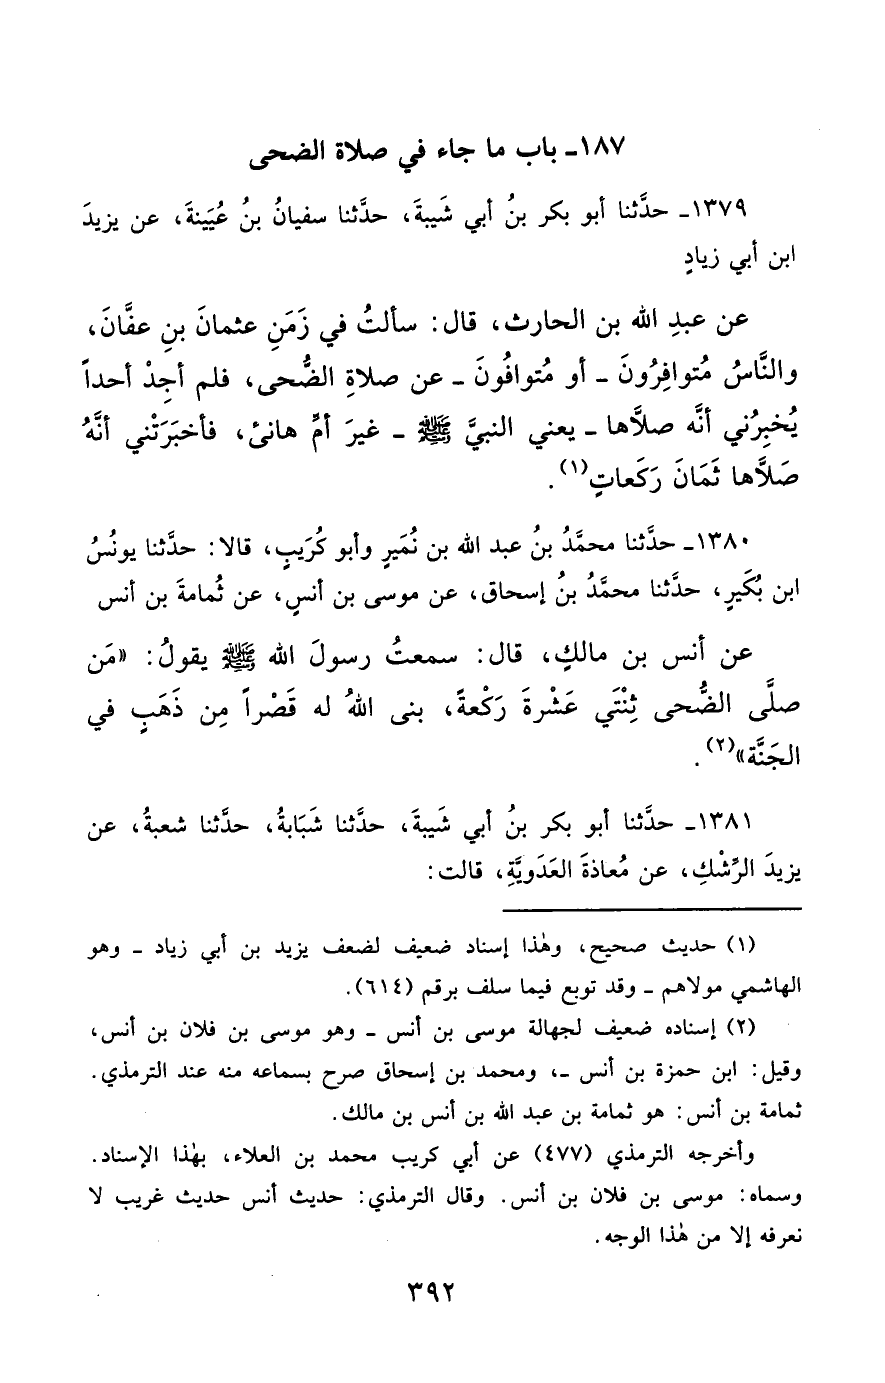 ١٨٧ـ باب ما جاء في صلاة الضحى
١٣٧٩ـ حدَّثنا أبو بكر بنُ أبي شَيبةَ، حدَّثنا سفيانُ بنُ عُيَينةَ، عن يزيدَ
ابن أبي زيادٍ
عن عبدِ الله بن الحارث، قال: سألتُ في زَمَنِ عثمانَ بنِ عفَّانَ،
والنَّاسُ مُتوافِرُونَ ـ أو مُتوافُونَ ـ عن صلاةِ الضُّحى، فلم أجِدْ أحداً
يُخبِرُني أنَّه صلاَّها ـ يعني النبيَّ ﷺ ـ غيرَ أمِّ هانئ، فأخبَرَتْني أنَّهُ
صَلاَّها ثَمَانَ رَكَعاتٍ(١).
١٣٨٠ـ حدَّثنا محمَّدُ بنُ عبد الله بن نُمَيرٍ وأبو كُرَيبٍ، قالا: حدَّثنا يونُسُ
ابن بُكَيرٍ، حدَّثنا محمَّدُ بنُ إسحاق، عن موسى بن أنسٍ، عن ثُمامةَ بن أنس
عن أنس بن مالكٍ، قال: سمعتُ رسولَ الله ﷺ يقولُ: «مَن
صلَّى الضُّحى ثِنْتَي عَشْرةَ رَكْعةً، بنى اللهُ له قَصْراً مِن ذَهَبٍ في
الجَنَّة»(٢).
١٣٨١ـ حدَّثنا أبو بكر بنُ أبي شَيبةَ، حدَّثنا شَبَابةُ، حدَّثنا شعبةُ، عن
يزيدَ الرِّشْكِ، عن مُعاذةَ العَدَويَّةِ، قالت:
(١) حديث صحيح، وهٰذا إسناد ضعيف لضعف يزيد بن أبي زياد ـ وهو
الهاشمي مولاهم ـ وقد توبع فيما سلف برقم (٦١٤).
(٢) إسناده ضعيف لجهالة موسى بن أنس ـ وهو موسى بن فلان بن أنس،
وقيل: ابن حمزة بن أنس ـ، ومحمد بن إسحاق صرح بسماعه منه عند الترمذي.
ثمامة بن أنس: هو ثمامة بن عبد الله بن أنس بن مالك.
وأخرجه الترمذي (٤٧٧) عن أبي كريب محمد بن العلاء، بهٰذا الإسناد.
وسماه: موسى بن فلان بن أنس. وقال الترمذي: حديث أنس حديث غريب لا
نعرفه إلا من هٰذا الوجه.
٣٩٢